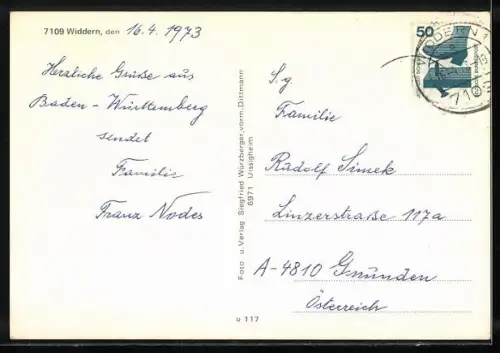 7109 Widdern, den 16.4.1973
Herzliche Grüße aus
Baden - Württemberg
sendet
Familie
Franz Nodes
Foto u. Verlag Siegfried Würzberger, vorm. Dittmann
6971 Uissigheim
u 117
50
WIDDERN 1
710
S.g
Familie
Rudolf Simek
Linzerstraße 117a
A-4810 Gmünden
Österreich